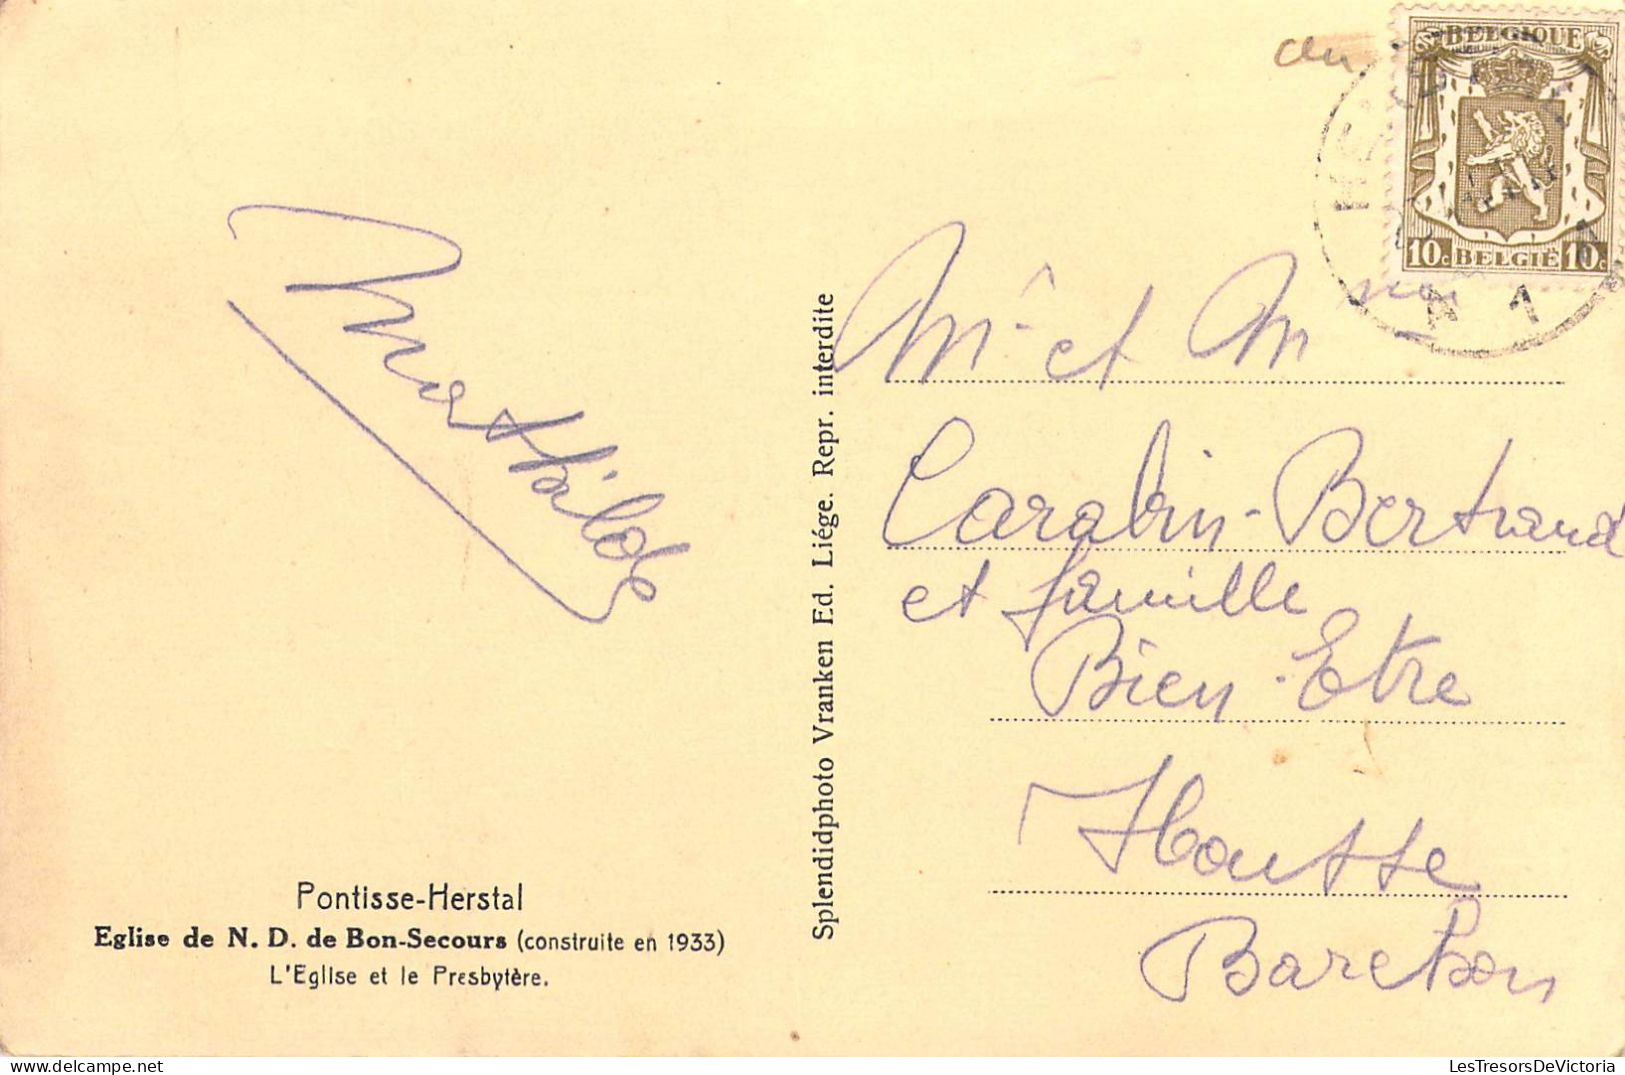 BELGIQUE
10c BELGIË 10c
HE
A 1
Mr et M
Carabin-Bertrand
et famille
Bien-Etre
Housse
Barchon
Mathilde
Splendidphoto Vranken Ed. Liége. Repr. interdite
Pontisse-Herstal
Eglise de N. D. de Bon-Secours (construite en 1933)
L'Eglise et le Presbytère.
LesTresorsDeVictoria